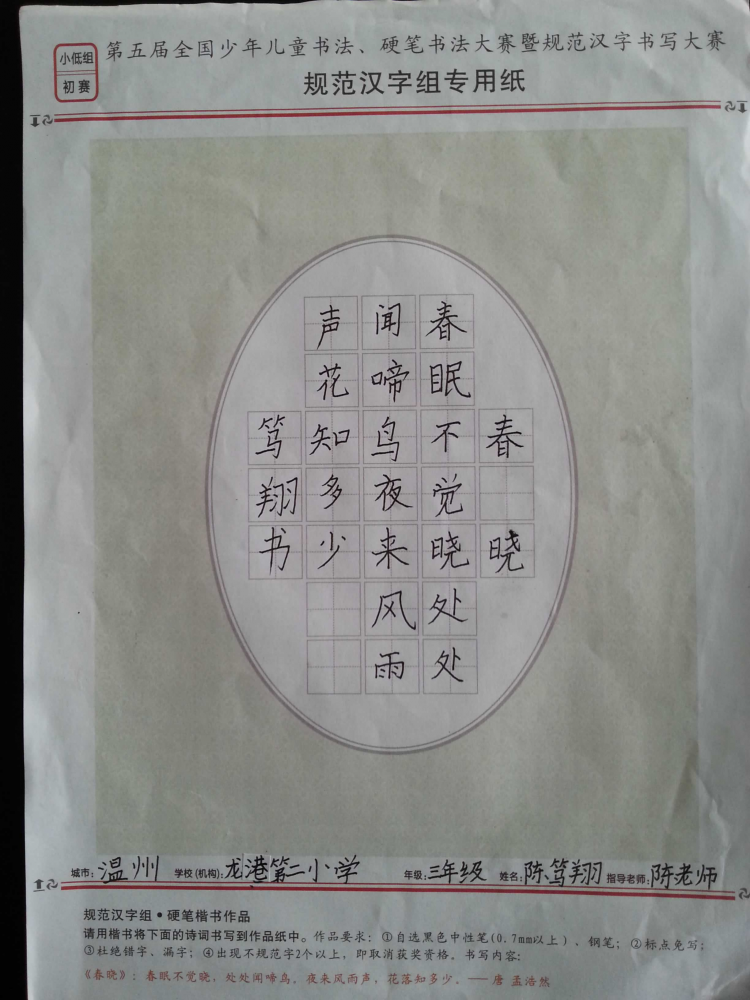 小低组
初赛
第五届全国少年儿童书法、硬笔书法大赛暨规范汉字书写大赛
规范汉字组专用纸
春晓
春眠不觉晓处处
闻啼鸟夜来风雨
声花知多少
笃翔书
城市：温州 学校(机构)：龙港第二小学 年级：三年级 姓名：陈笃翔 指导老师：陈老师
规范汉字组•硬笔楷书作品
请用楷书将下面的诗词书写到作品纸中。作品要求：①自选黑色中性笔(0.7mm以上)、钢笔；②标点免写；
③杜绝错字、漏字；④出现不规范字2个以上，即取消获奖资格。书写内容：
《春晓》：春眠不觉晓，处处闻啼鸟，夜来风雨声，花落知多少。——唐 孟浩然